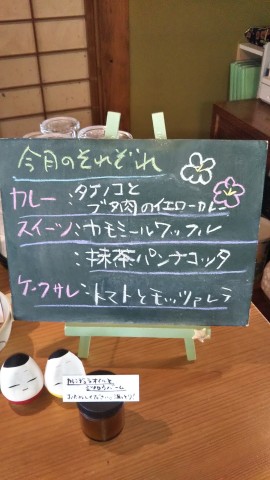 今月のそれぞれ
カレー:タケノコと
ブタ肉のイエローカレー
スイーツ:カモミールワッフル
:抹茶パンナコッタ
ケークサレ:トマトとモッツァレラ